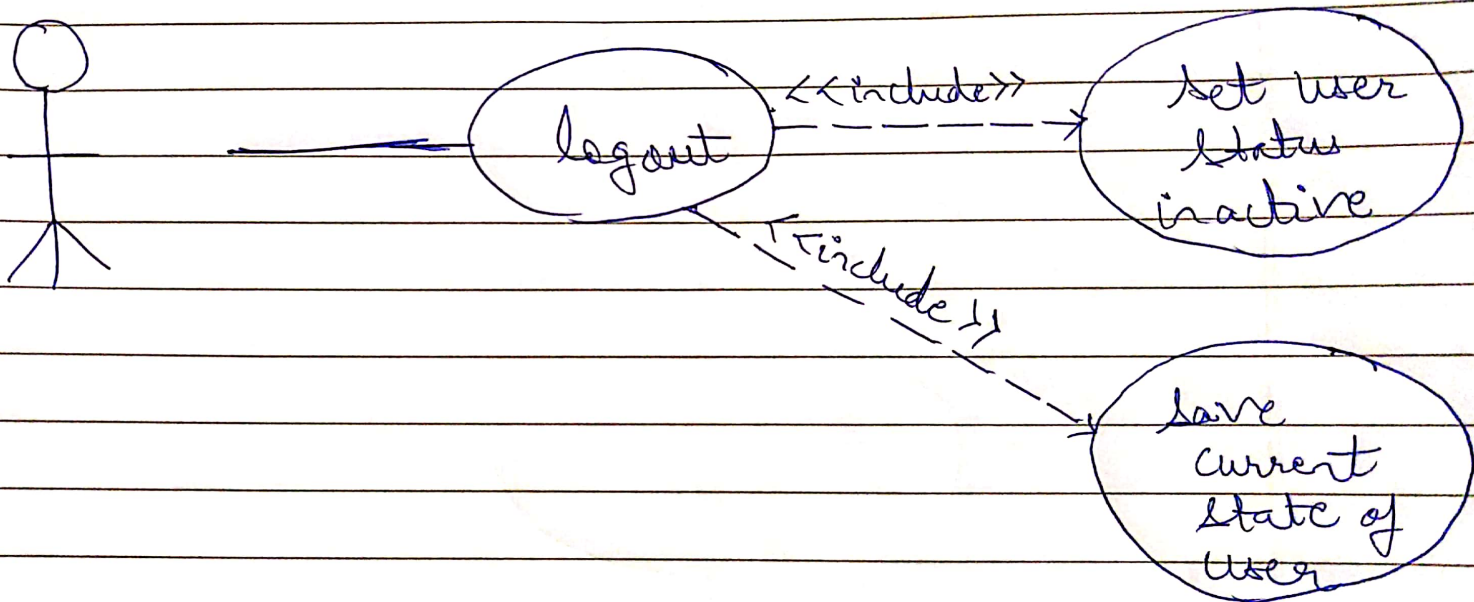 <<include>>
set user
status
inactive
logout
<<include>>
save
current
state of
user